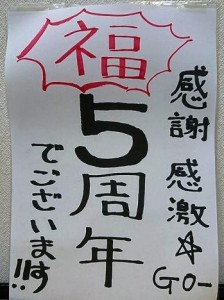 感謝 感激☆GO-
福
5周年
でございます!!